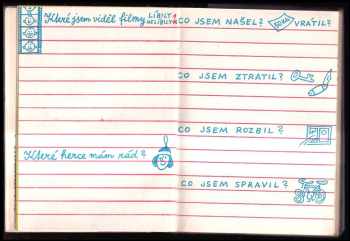 Které jsem viděl filmy LÍBILY
NELÍBILY?
Které herce mám rád?
CO JSEM NAŠEL? VRÁTIL?
CO JSEM ZTRATIL?
CO JSEM ROZBIL?
CO JSEM SPRAVIL?